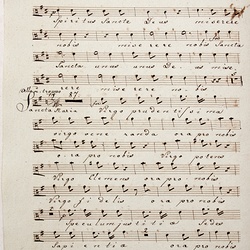 Spiritus Sancte Deus miserere
nobis miserere nobis Sancta
Sancta unus Deus mise
rere miserere nobis
Sancta Maria Virgo prudentissima
virgo vene randa ora pro nobis
ora pro nobis Virgo potens
Virgo Clemens ora pro nobis
Virgo fidelis ora pro nobis
Speculum justitia Sedes
Sapientia ora pro nobis